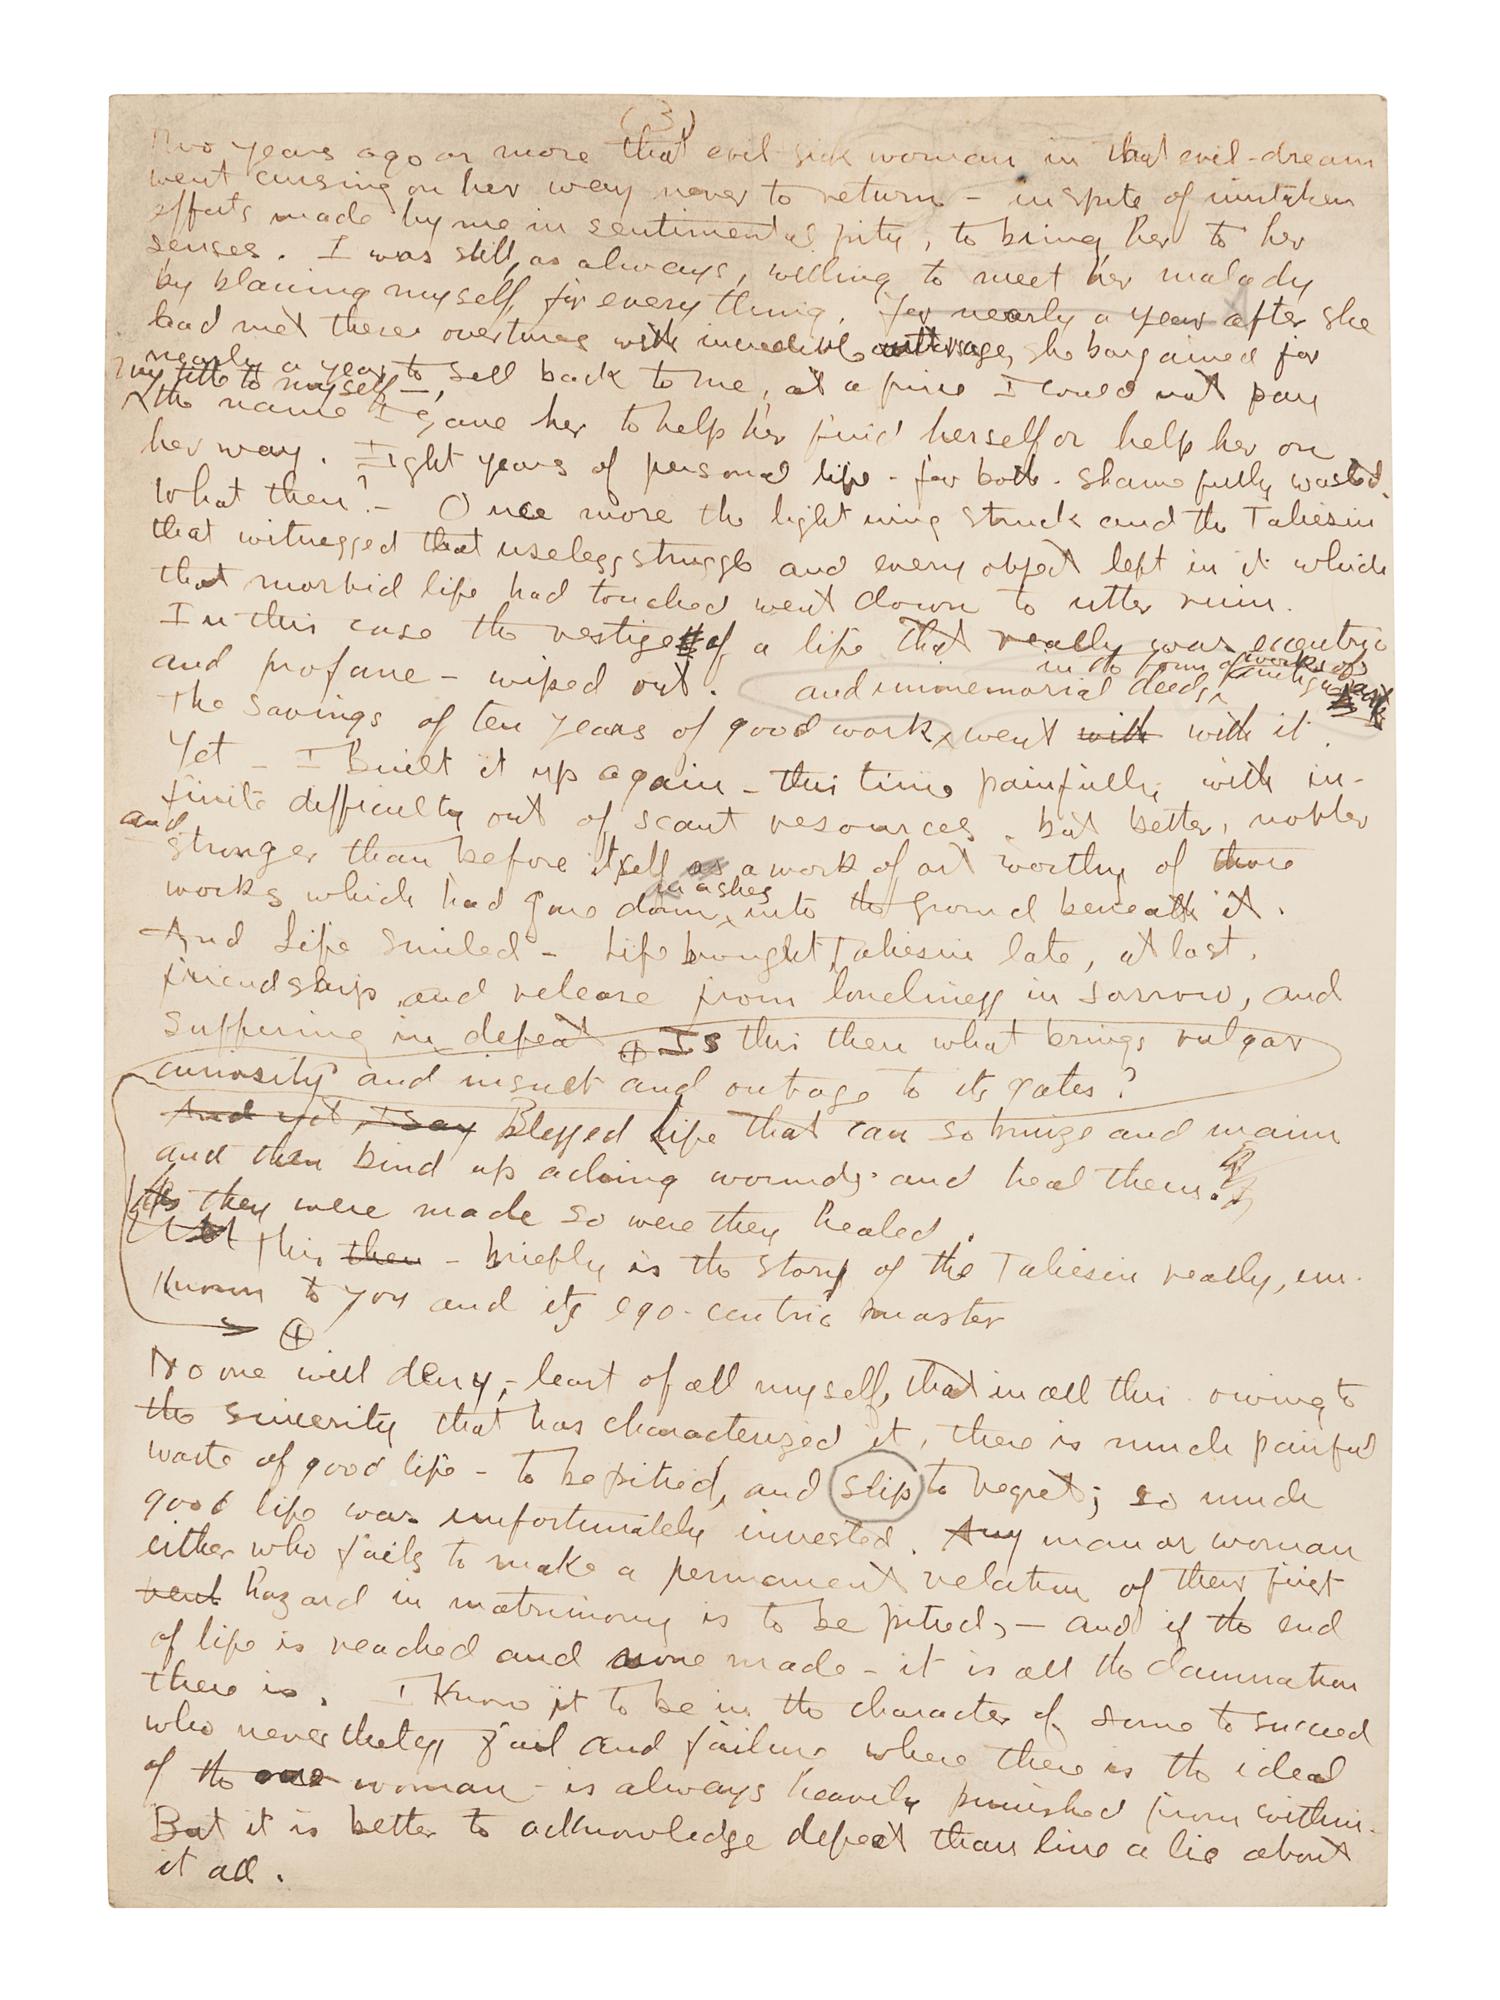 (3)
Two years ago or more that evil sick woman in that evil-dream
went cursing on her way never to return - in spite of mistaken
efforts made by me in sentimental pity, to bring her to her
senses. I was still, as always, willing to meet her malady
by blaming myself, for everything. For nearly a year after she
had met these overtures with incredible outrage, she bargained for
nearly a year to sell back to me, at a price I could not pay
my title to myself -,
the name I gave her to help her find herself or help her on
her way. Eight years of personal life - for both - shamefully wasted.
What then? - Once more the lightning struck and the Taliesin
that witnessed that useless struggle and every object left in it which
that morbid life had touched went down to utter ruin.
In this case the vestige of a life that really was eccentric
and profane - wiped out.
in the form of works of
and immemorial deeds antique art
The savings of ten years of good work, went with with it.
Yet - I Built it up again - this time painfully, with in-
finite difficulty out of scant resources - but better, nobler
and
stronger than before itself as a work of art worthy of those
in ashes
works which had gone down into the ground beneath it.
And Life smiled - Life brought Taliesin late, at last,
friendship, and release from loneliness in sorrow, and
suffering in defeat Is this then what brings vulgar
curiosity and insult and outrage to its gates?
And yet, I say Blessed Life that can so bruize and maim
and then bind up aching wounds and heal them.
As they were made so were they healed.
This then - briefly is the story of the Taliesin really, un-
known to you and its ego-centric master
No one will deny, - least of all myself, that in all this owing to
the sincerity that has characterized it, there is much painful
waste of good life - to be pitied, and slip to regret; so much
good life was unfortunately invested. Any man or woman
either who fails to make a permanent relation of their first
vent hazard in matrimony is to be pitied, - and if the end
of life is reached and none made - it is all the damnation
there is. I know it to be in the character of some to succeed
who nevertheless fail and failure where there is the ideal
of the one woman - is always heavily punished from within.
But it is better to acknowledge defeat than live a lie about
it all.